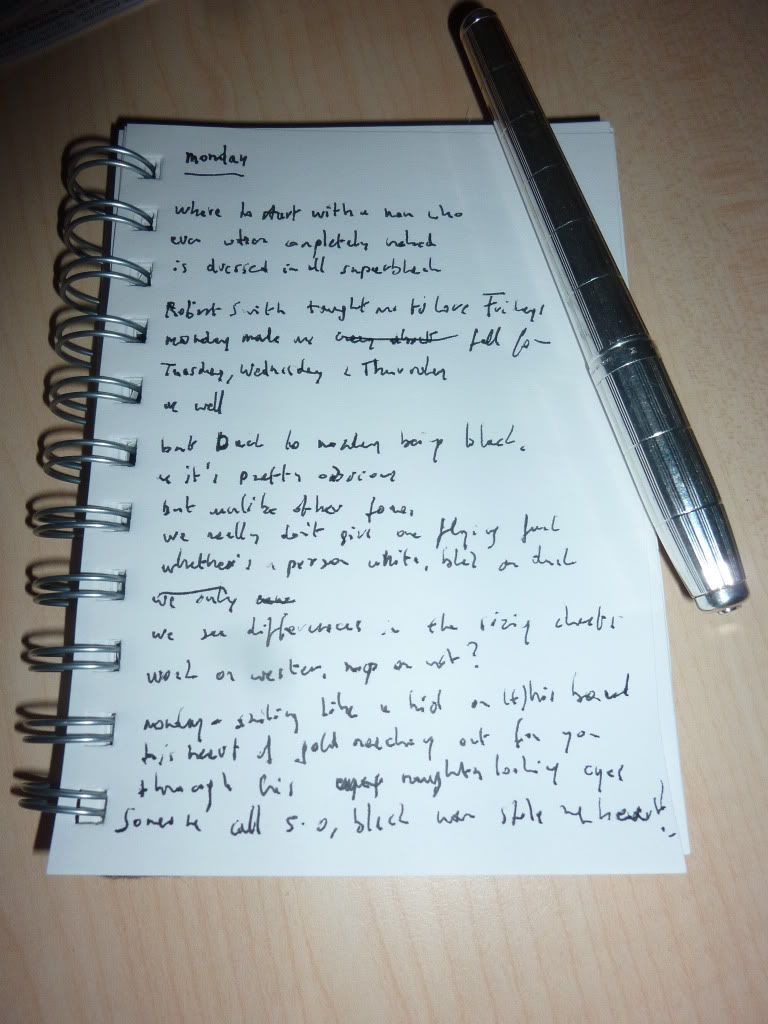 monday
where to start with a man who
even when completely naked
is dressed in all superblack
Robert Smith taught me to love Fridays
monday made me crazy about fall for
Tuesday, Wednesday & Thursday
as well
but back to monday being black.
it's pretty obvious
but unlike other
we really don't give one flying fuck
whether's a person white, black or
we only
we see differences in the sizing charts
work or wester, nap or not?
monday smiling like a kid on (t)his board
this heart of gold reaching out for you
through his naughty looking eyes
Someone call 5-0, black man stole my heart!